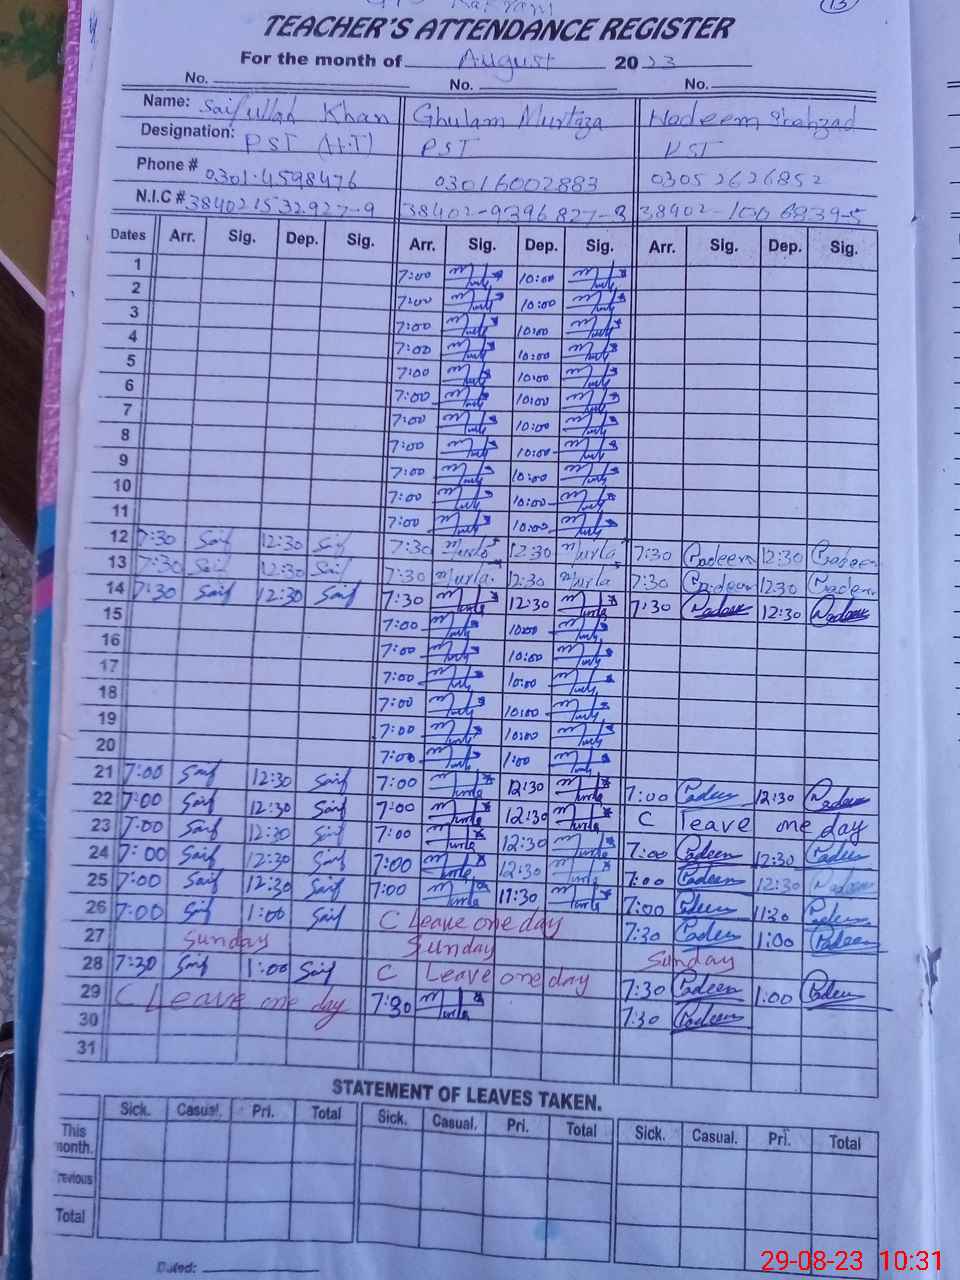 13
TEACHER'S ATTENDANCE REGISTER
For the month of August 2023
No. No. No.
Name: Saifullah Khan Ghulam Murtaza Nadeem Shahzad
Designation: PST (H.T) PST PST
Phone # 0301-4598476 03016002883 03052626852
N.I.C # 384021532927-9 38402-9396827-3 38402-1006839-5
Dates Arr. Sig. Dep. Sig. Arr. Sig. Dep. Sig. Arr. Sig. Dep. Sig.
1 7:00 10:00
2 7:00 10:00
3 7:00 10:00
4 7:00 10:00
5 7:00 10:00
6 7:00 10:00
7 7:00 10:00
8 7:00 10:00
9 7:00 10:00
10 7:00 10:00
11 7:00 10:00
12 7:30 Saif 12:30 Saif 7:30 12:30 7:30 12:30
13 7:30 Saif 12:30 Saif 7:30 12:30 7:30 12:30
14 7:30 Saif 12:30 Saif 7:30 12:30 7:30 12:30
15 7:00 10:00
16 7:00 10:00
17 7:00 10:00
18 7:00 10:00
19 7:00 10:00
20 7:00 1:00
21 7:00 Saif 12:30 Saif 7:00 12:30 7:00 12:30
22 7:00 Saif 12:30 Saif 7:00 12:30 C leave one day
23 7:00 Saif 12:30 Saif 7:00 12:30 7:00 12:30
24 7:00 Saif 12:30 Saif 7:00 12:30 7:00 12:30
25 7:00 Saif 12:30 Saif 7:00 11:30 7:00 11:30
26 7:00 Saif 1:00 Saif C Leave one day 7:30 1:00
27 Sunday Sunday Sunday
28 7:30 Saif 1:00 Saif C Leave one day 7:30 1:00
29 C Leave one day 7:30 7:30
30
31
STATEMENT OF LEAVES TAKEN.
Sick. Casual. Pri. Total Sick. Casual. Pri. Total Sick. Casual. Pri. Total
This month.
revious
Total
Dated:
29-08-23 10:31